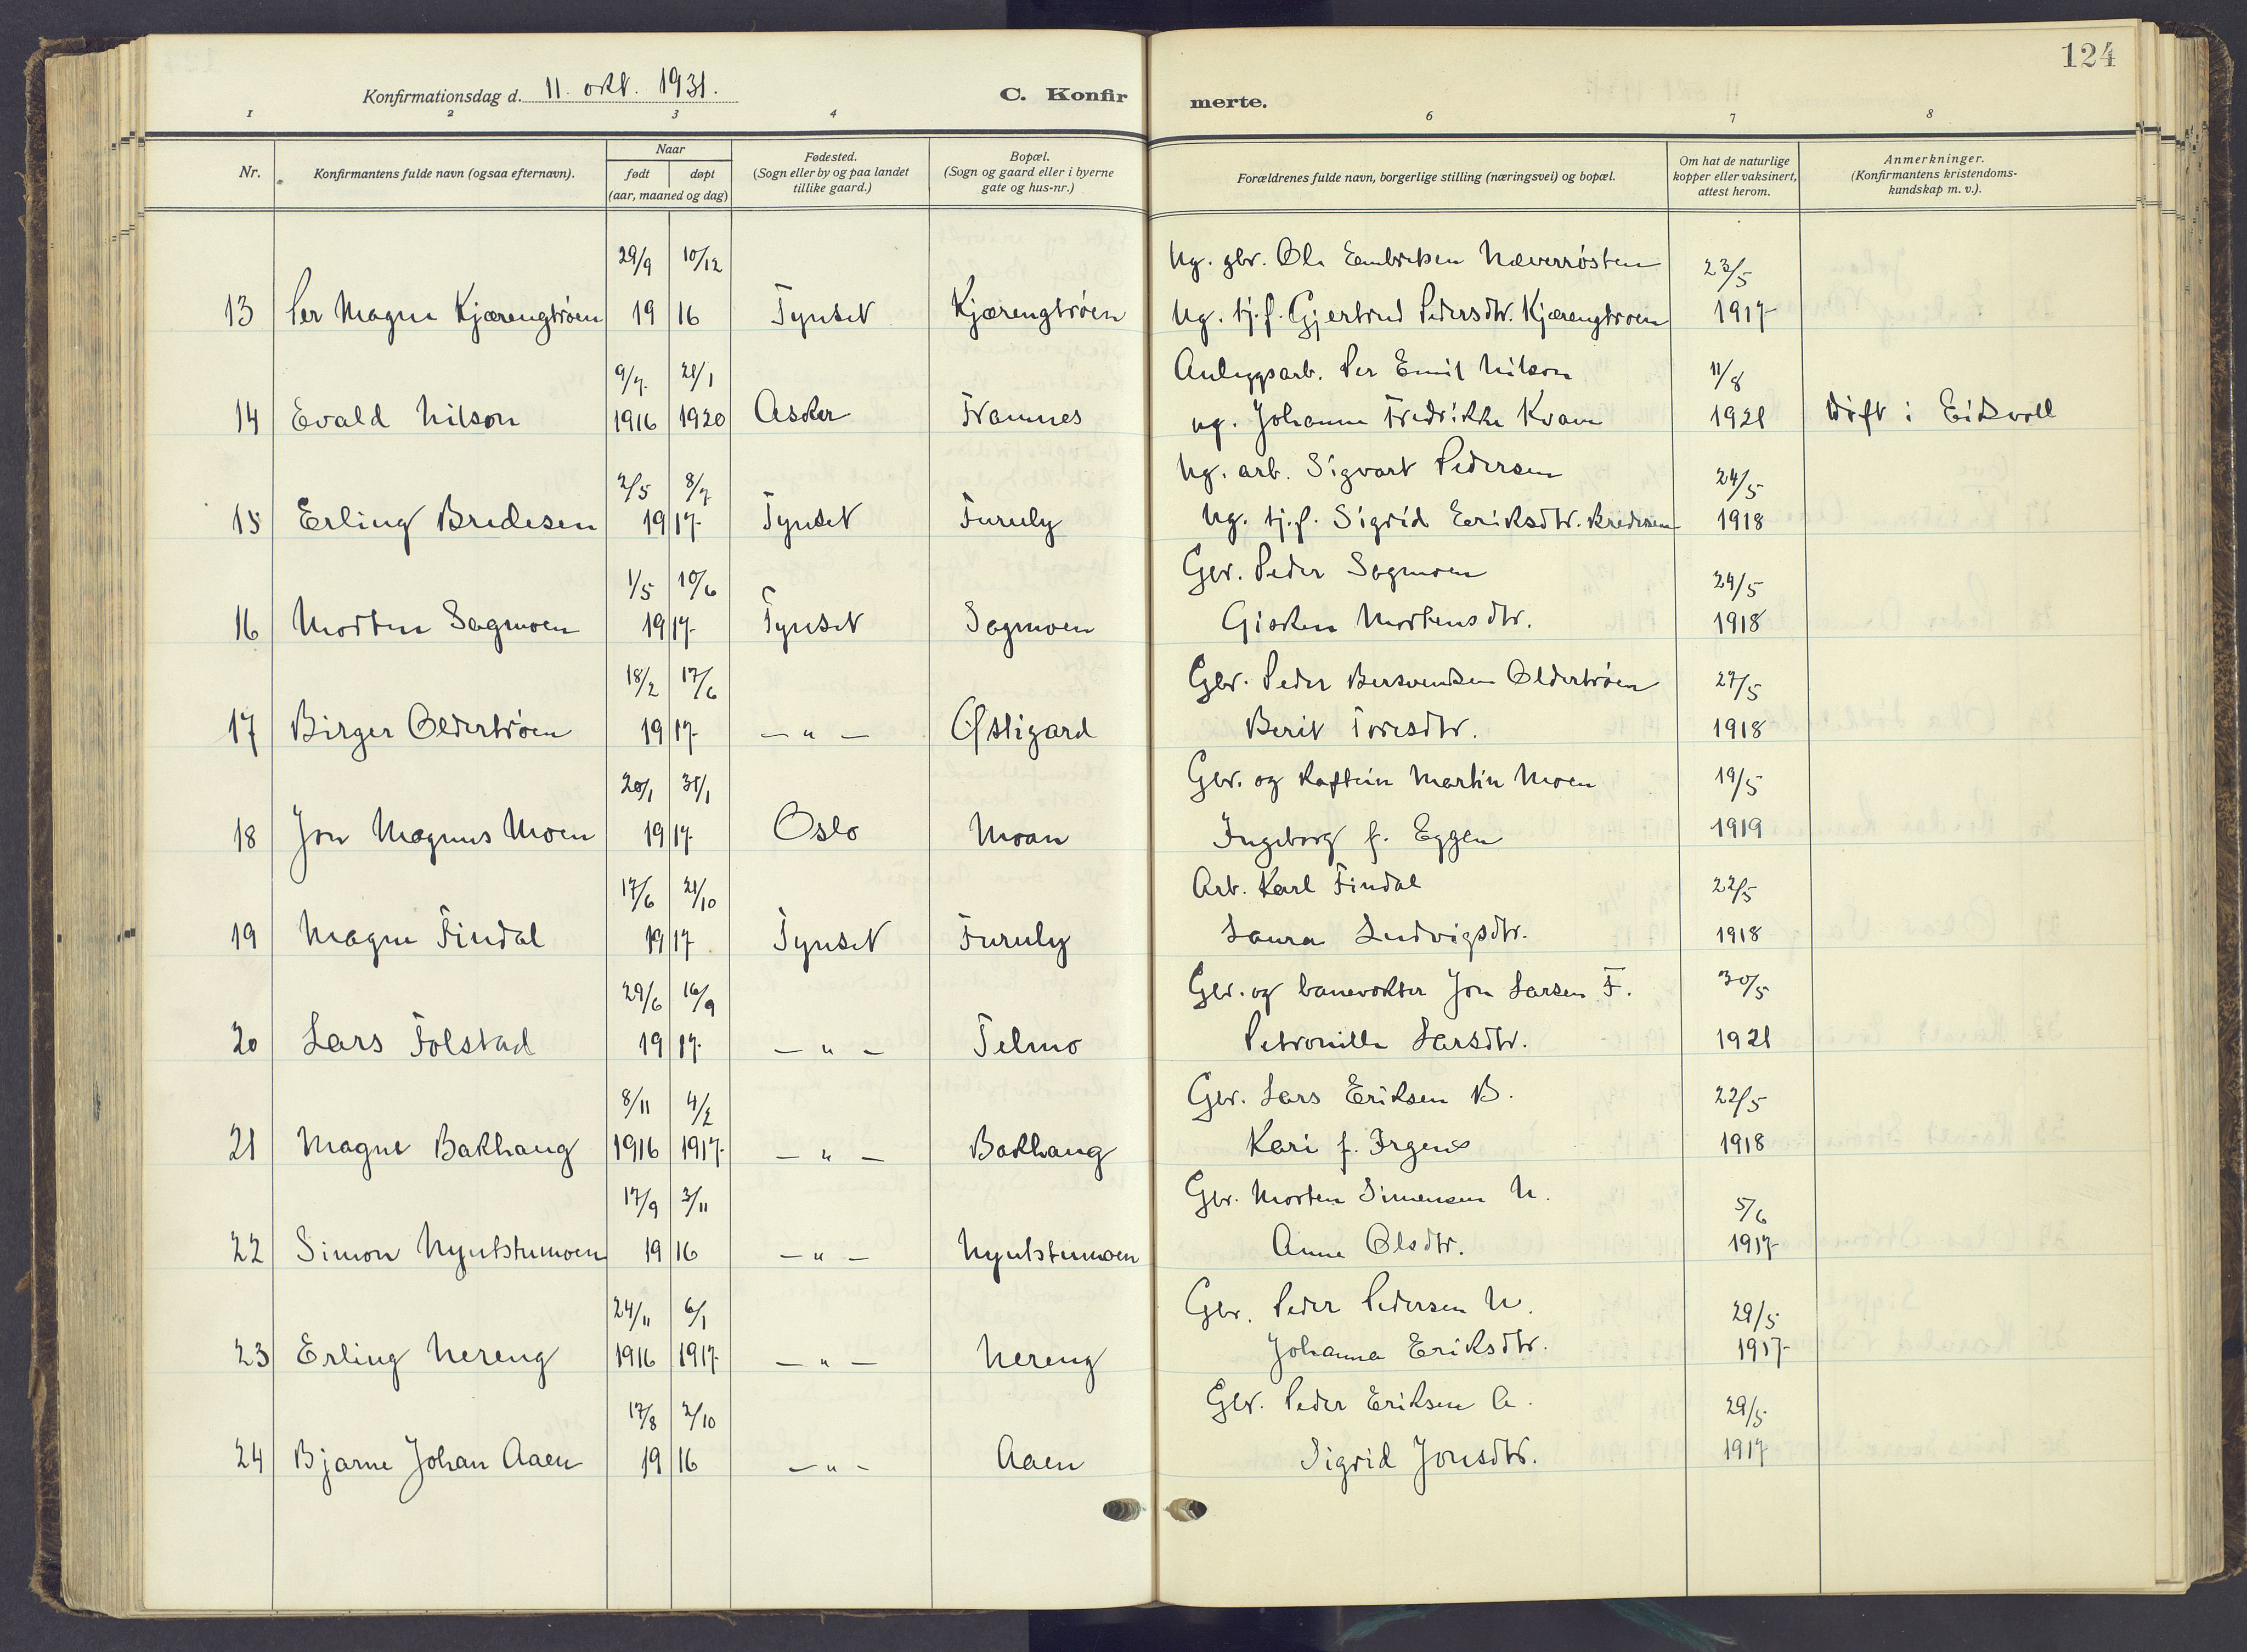 124
Konfirmationsdag d. 11. okt. 1931.
C. Konfirmerte.
1 2 3 4 6 7 8
Nr. Konfirmantens fulde navn (ogsaa efternavn). Naar født døpt (aar, maaned og dag) Fødested. (Sogn eller by og paa landet tillike gaard.) Bopæl. (Sogn og gaard eller i byerne gate og hus-nr.) Forældrenes fulde navn, borgerlige stilling (næringsvei) og bopæl. Om hat de naturlige kopper eller vaksinert, attest herom. Anmerkninger. (Konfirmantens kristendoms-kundskap m. v.).
29/9 10/12 Ug. gbr. Ola Embretsen Næverrøsten 23/5
13 Per Magne Kjærengtrøen 19 16 Tynset Kjærengtrøen Ug. tj.p. Gjertrud Pedersdtr. Kjærengtrøen 1917
9/7 21/1 Anleggsarb. Per Emil Nilson 11/8
14 Evald Nilson 1916 1920 Asker Framnes ug. Johanne Fredrikke Kvam 1921 Døpt i Eidsvoll
2/5 8/7 Ug. arb. Sigvart Pedersen 24/5
15 Erling Bredesen 19 17 Tynset Furuly Ug. tj.p. Sigrid Eriksdtr. Bredesen 1918
1/5 10/6 Gbr. Peder Sagmoen 24/5
16 Morten Sagmoen 19 17 Tynset Sagmoen Gisken Mortensdtr. 1918
18/2 17/6 Gbr. Peder Bersvendsen Oldertrøen 27/5
17 Birger Oldertrøen 19 17 — " — Østigard Berit Toresdtr. 1918
20/1 31/1 Gbr. og kaptein Martin Moen 19/5
18 Jon Magnus Moen 19 17 Oslo Moan Ingeborg f. Eggen 1919
17/6 21/10 Arb. Karl Findal 22/5
19 Magne Findal 19 17 Tynset Furuly Laura Ludvigsdtr. 1918
29/6 16/9 Gbr. og banevokter Jon Larsen F. 30/5
20 Lars Folstad 19 17 — " — Telmo Petronille Larsdtr. 1921
8/11 4/2 Gbr. Lars Eriksen B. 22/5
21 Magne Bakhaug 1916 1917 — " — Bakhaug Kari f. Irgens 1918
17/9 3/11 Gbr. Morten Simensen N. 5/6
22 Simon Nyutstumoen 19 16 — " — Nyutstumoen Anne Olsdtr. 1917
24/11 6/1 Gbr. Peder Pedersen N. 29/5
23 Erling Nereng 1916 1917 — " — Nereng Johanna Eriksdtr. 1917
17/8 2/10 Gbr. Peder Eriksen A. 29/5
24 Bjarne Johan Aaen 19 16 — " — Aaen Sigrid Jonsdtr. 1917